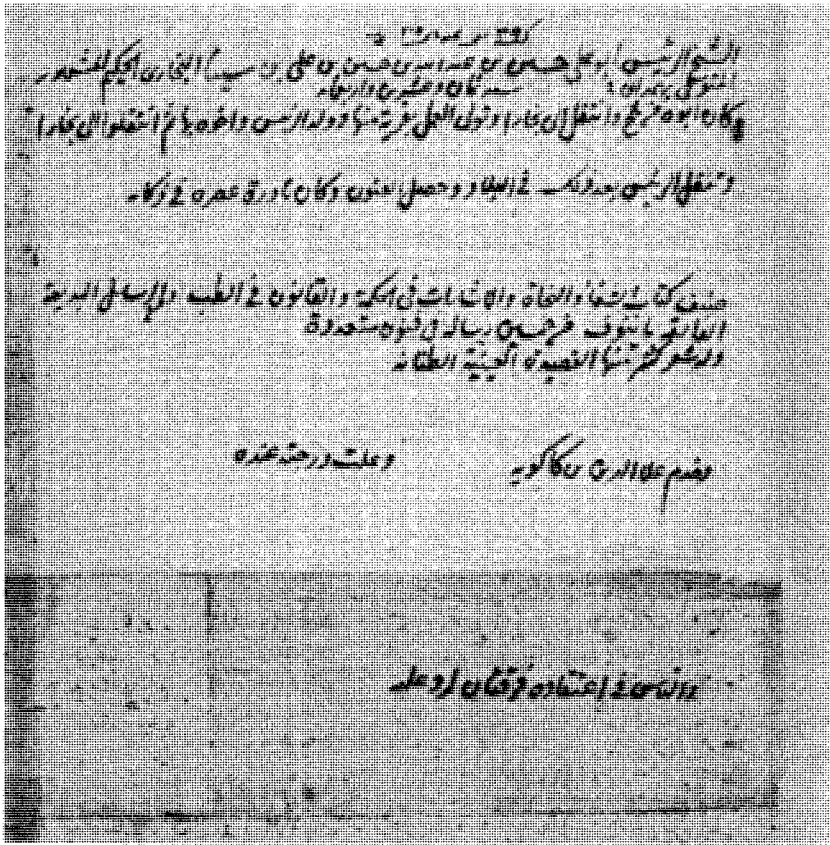 الشيخ الرئيس أبو علي حسين بن عبد الله بن حسين بن علي بن سينا البخاري الحكيم المشهور
المتوفى بهمدان سنة ثمان وعشرين وأربعمائة
وكان أبوه من بلخ وانتقل إلى بخارا وتولى العمل بقرية منها وولد الرئيس وأخوه بها ثم انتقلوا إلى بخارا
وتنقل الرئيس بعد ذلك في البلاد وحصل الفنون وكان نادرة عصره في ذكائه
صنف كتاب الشفا والنجاة والإشارات في الحكمة والقانون في الطب والرسائل البديعة
ما ينوف عن خمسين رسالة في فنون متعددة
وله شعر كثير منها القصيدة العينية الطنانة
وخدم علاء الدين بن كاكويه وعلت درجته عنده
والناس في اعتقاده فرقتان له وعليه